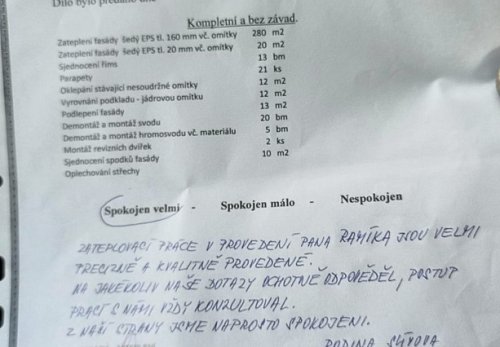 Dílo bylo předáno dne
Kompletní a bez závad.
Zateplení fasády šedý EPS tl. 160 mm vč. omítky 280 m2
Zateplení fasády šedý EPS tl. 20 mm vč. omítky 20 m2
Sjednocení říms 13 bm
Parapety 21 ks
Oklepání stávající nesoudržné omítky 12 m2
Vyrovnání podkladu - jádrovou omítku 12 m2
Podlepení fasády 13 m2
Demontáž a montáž svodu 20 bm
Demontáž a montáž hromosvodu vč. materiálu 5 bm
Montáž revizních dvířek 2 ks
Sjednocení spodků fasády 10 m2
Oplechování střechy
Spokojen velmi - Spokojen málo - Nespokojen
ZATEPLOVACÍ PRÁCE V PROVEDENÍ PANA JSOU VELMI
PRECIZNĚ A KVALITNĚ PROVEDENÉ.
NA JAKÉKOLIV NAŠE DOTAZY OCHOTNĚ ODPOVĚDĚL, POSTUP
PRACÍ S NÁMI VŽDY KONZULTOVAL.
Z NAŠÍ STRANY JSME NAPROSTO SPOKOJENI.
RODINA